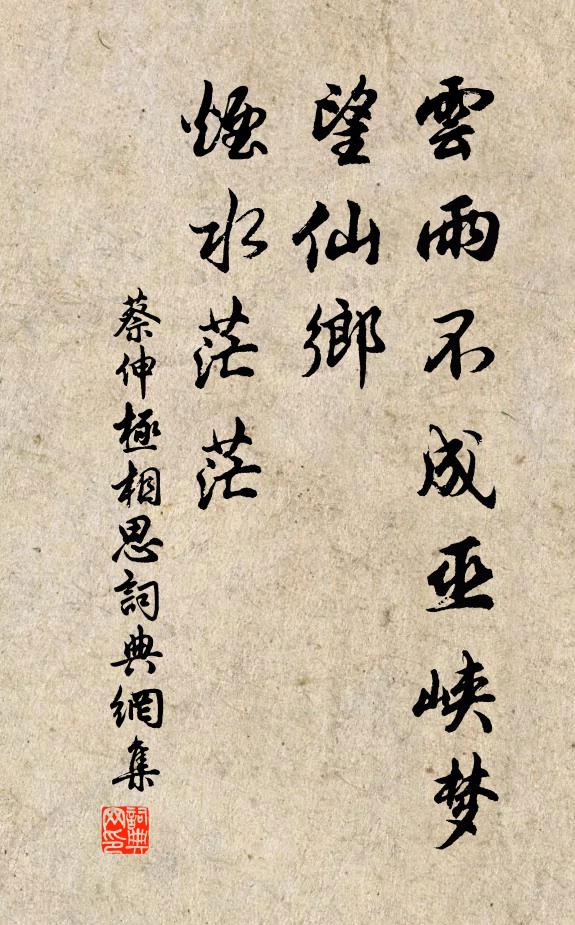 雲雨不成巫峽梦
望仙鄉
煙水茫茫
蔡伸極相思詞典網集
詞典
网印